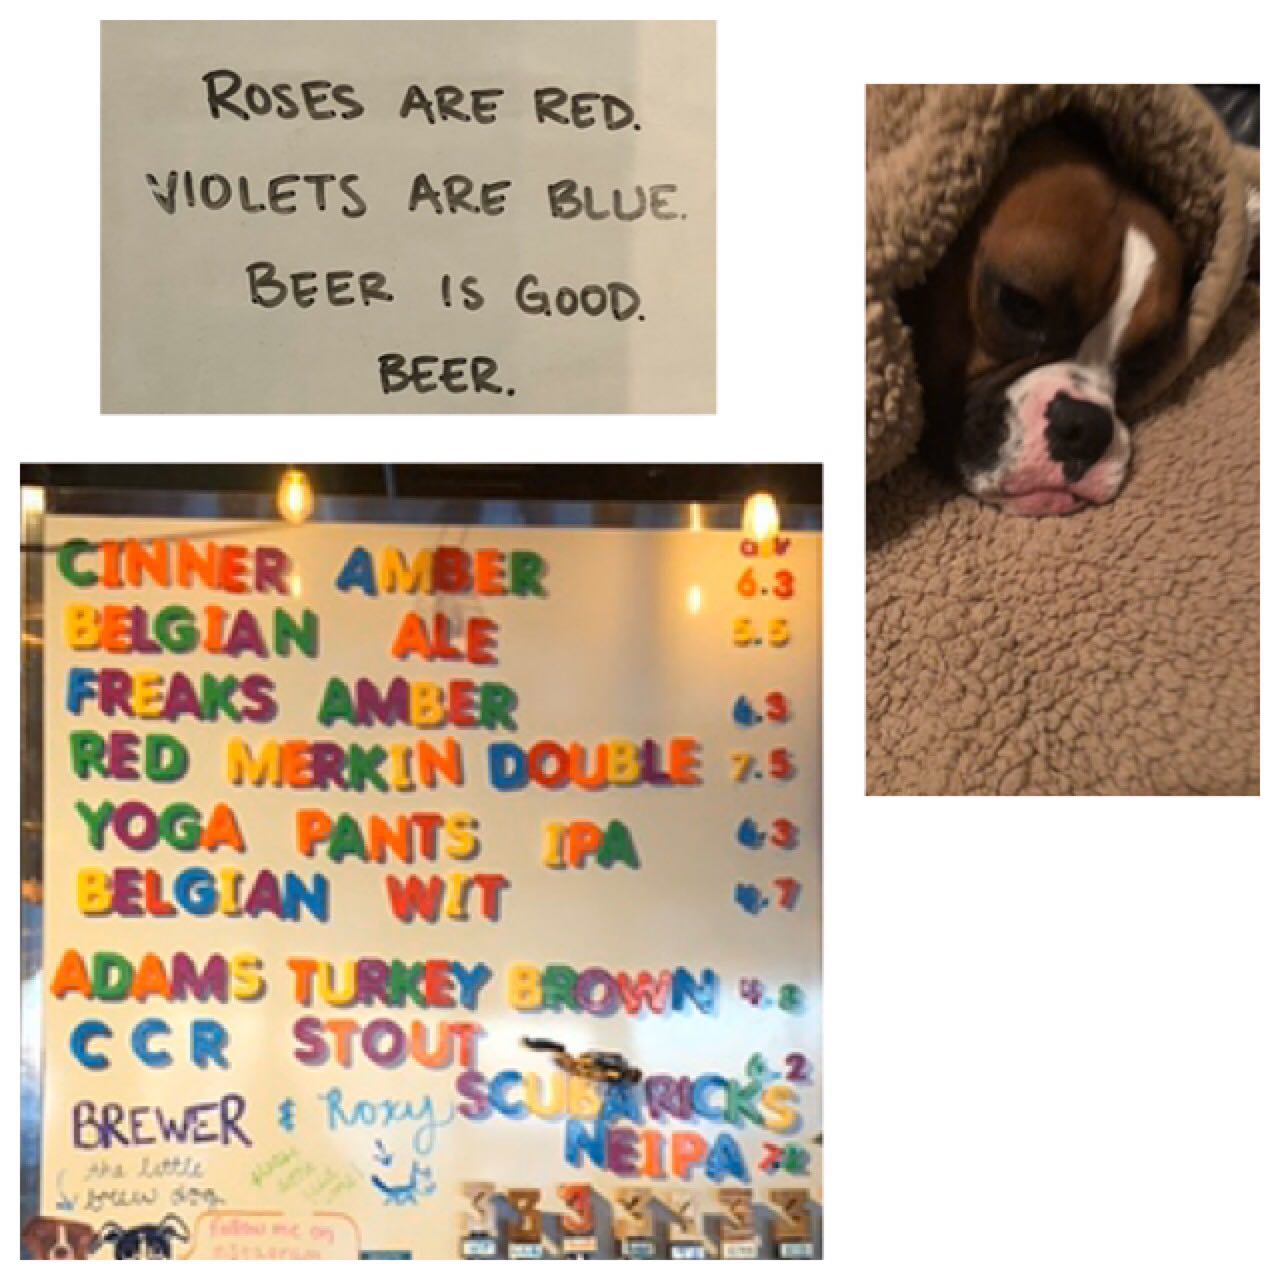 ROSES ARE RED.
VIOLETS ARE BLUE.
BEER IS GOOD.
BEER.
CINNER AMBER 6.3
BELGIAN ALE 5.5
FREAKS AMBER 6.3
RED MERKIN DOUBLE 7.5
YOGA PANTS IPA 6.3
BELGIAN WIT 4.7
ADAMS TURKEY BROWN 4.8
CCR STOUT 6.2
SCUBA RICKS
NEIPA
BREWER & Roxy
the little
brew dog
Follow me on